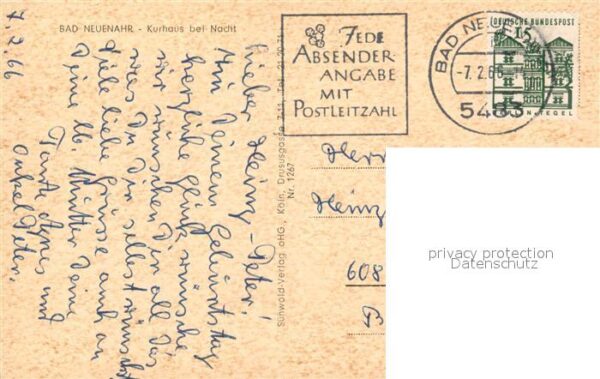 BAD NEUENAHR - Kurhaus bei Nacht
7.2.66
Lieber Heinz-Peter!
Zu Deinem Geburtstag
herzliche Glückwünsche
wir wünschen Dir all das
was Du Dir selbst wünschst
Viele liebe Grüsse auch an
Deine lb. Mutter Deine
Tante Agnes und
Onkel Peter.
Sünwold-Verlag oHG., Köln, Drususgasse 7-11, Tel.
Nr. 1267
JEDE
ABSENDER
ANGABE
MIT
POSTLEITZAHL
BAD NEUENAHR
-7.2.66
5483
DEUTSCHE BUNDESPOST
15
TEGEL
Herr
Heinz
608
B
privacy protection
Datenschutz